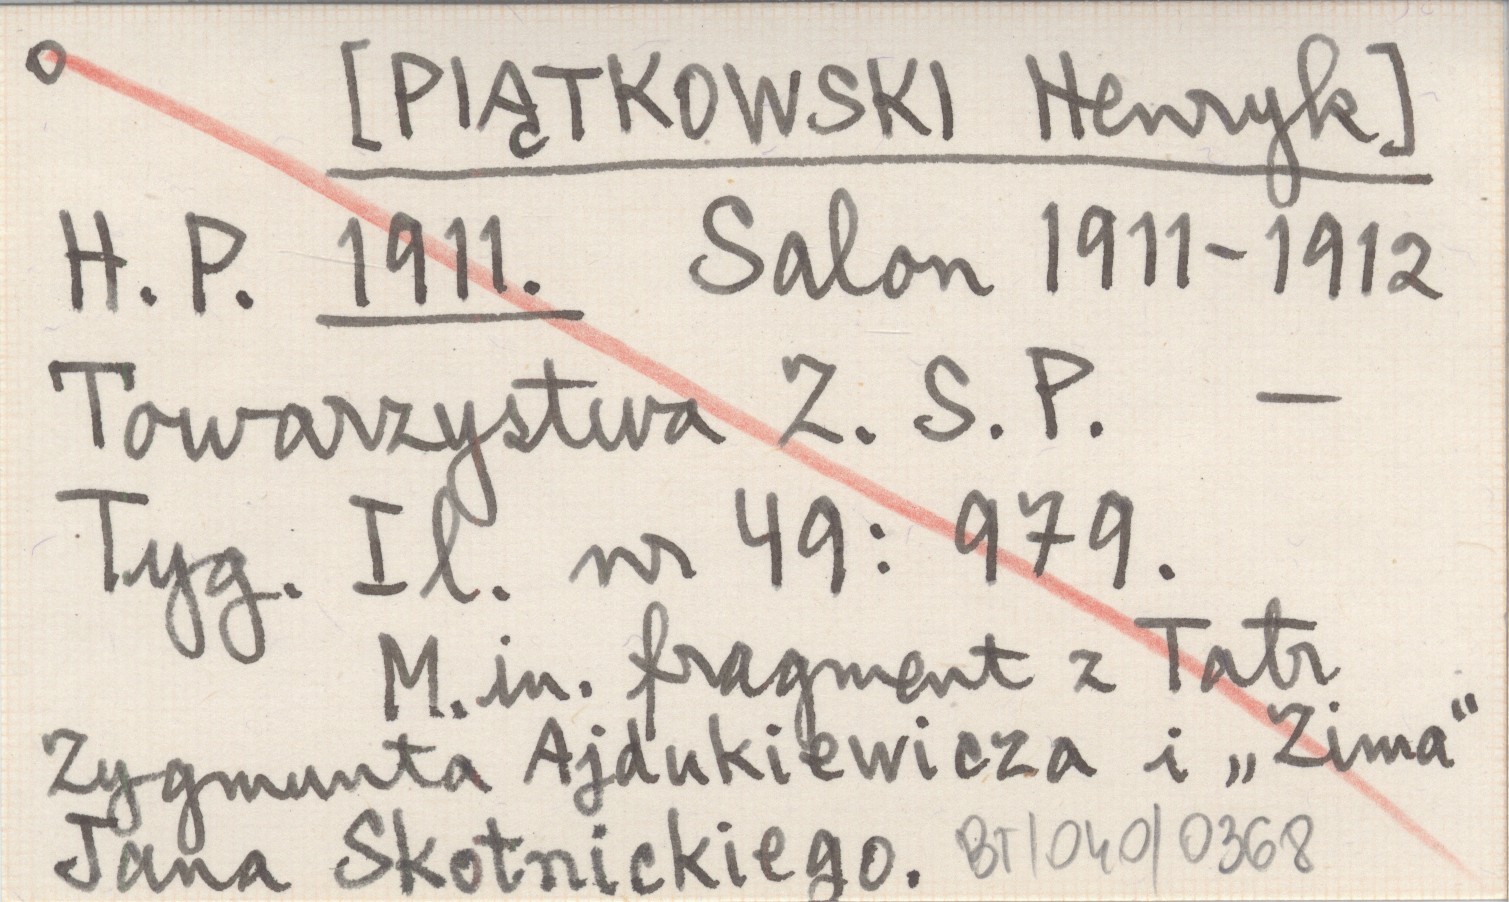 [PIĄTKOWSKI Henryk]
H. P. 1911. Salon 1911-1912
Towarzystwa Z. S. P. —
Tyg. Il. nr 49: 979.
M.in. fragment z Tatr
Zygmunta Ajdukiewicza i „Zima"
Jana Skotnickiego. BT/040/0368